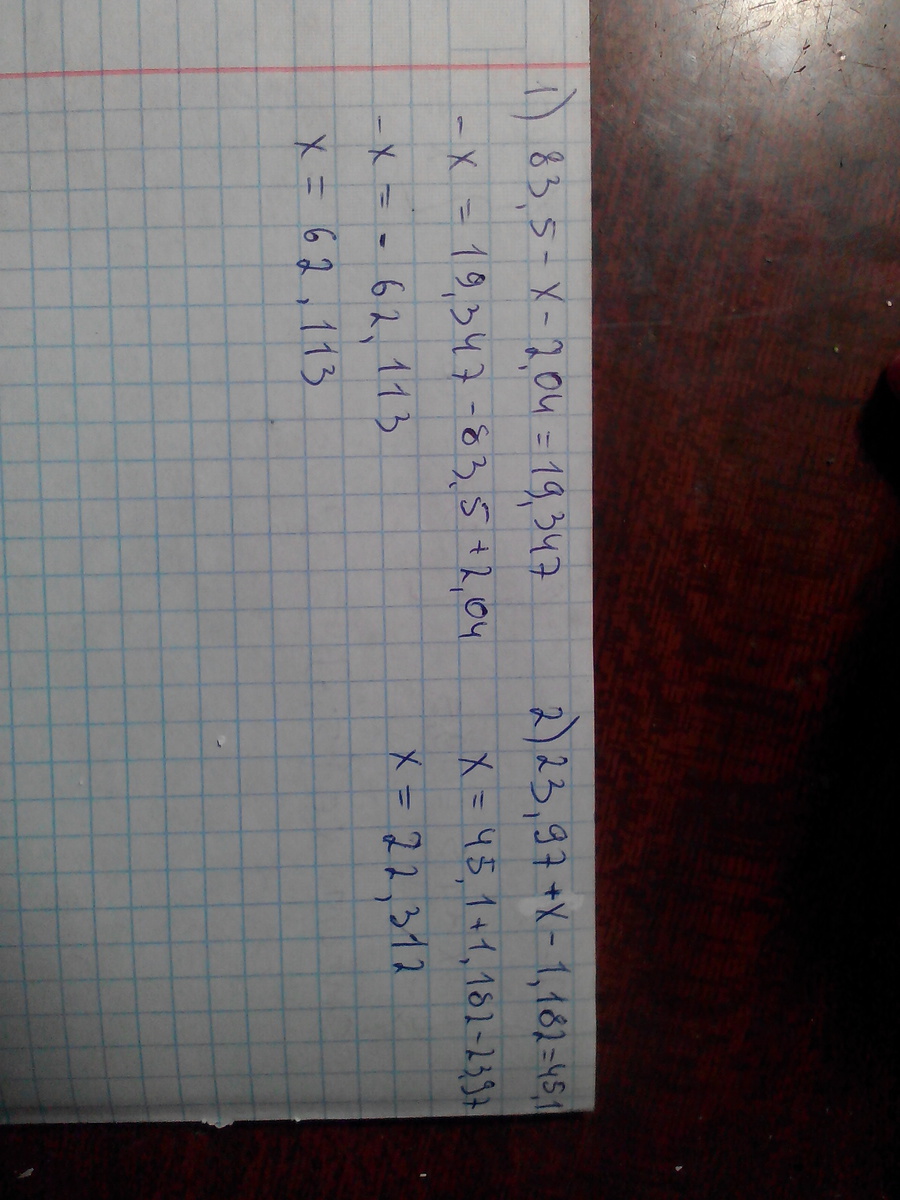 1) 83,5 - x - 2,04 = 19,347
- x = 19,347 - 83,5 + 2,04
- x = - 62,113
x = 62,113
2) 23,97 + x - 1,182 = 45,1
x = 45,1 + 1,182 - 23,97
x = 22,312